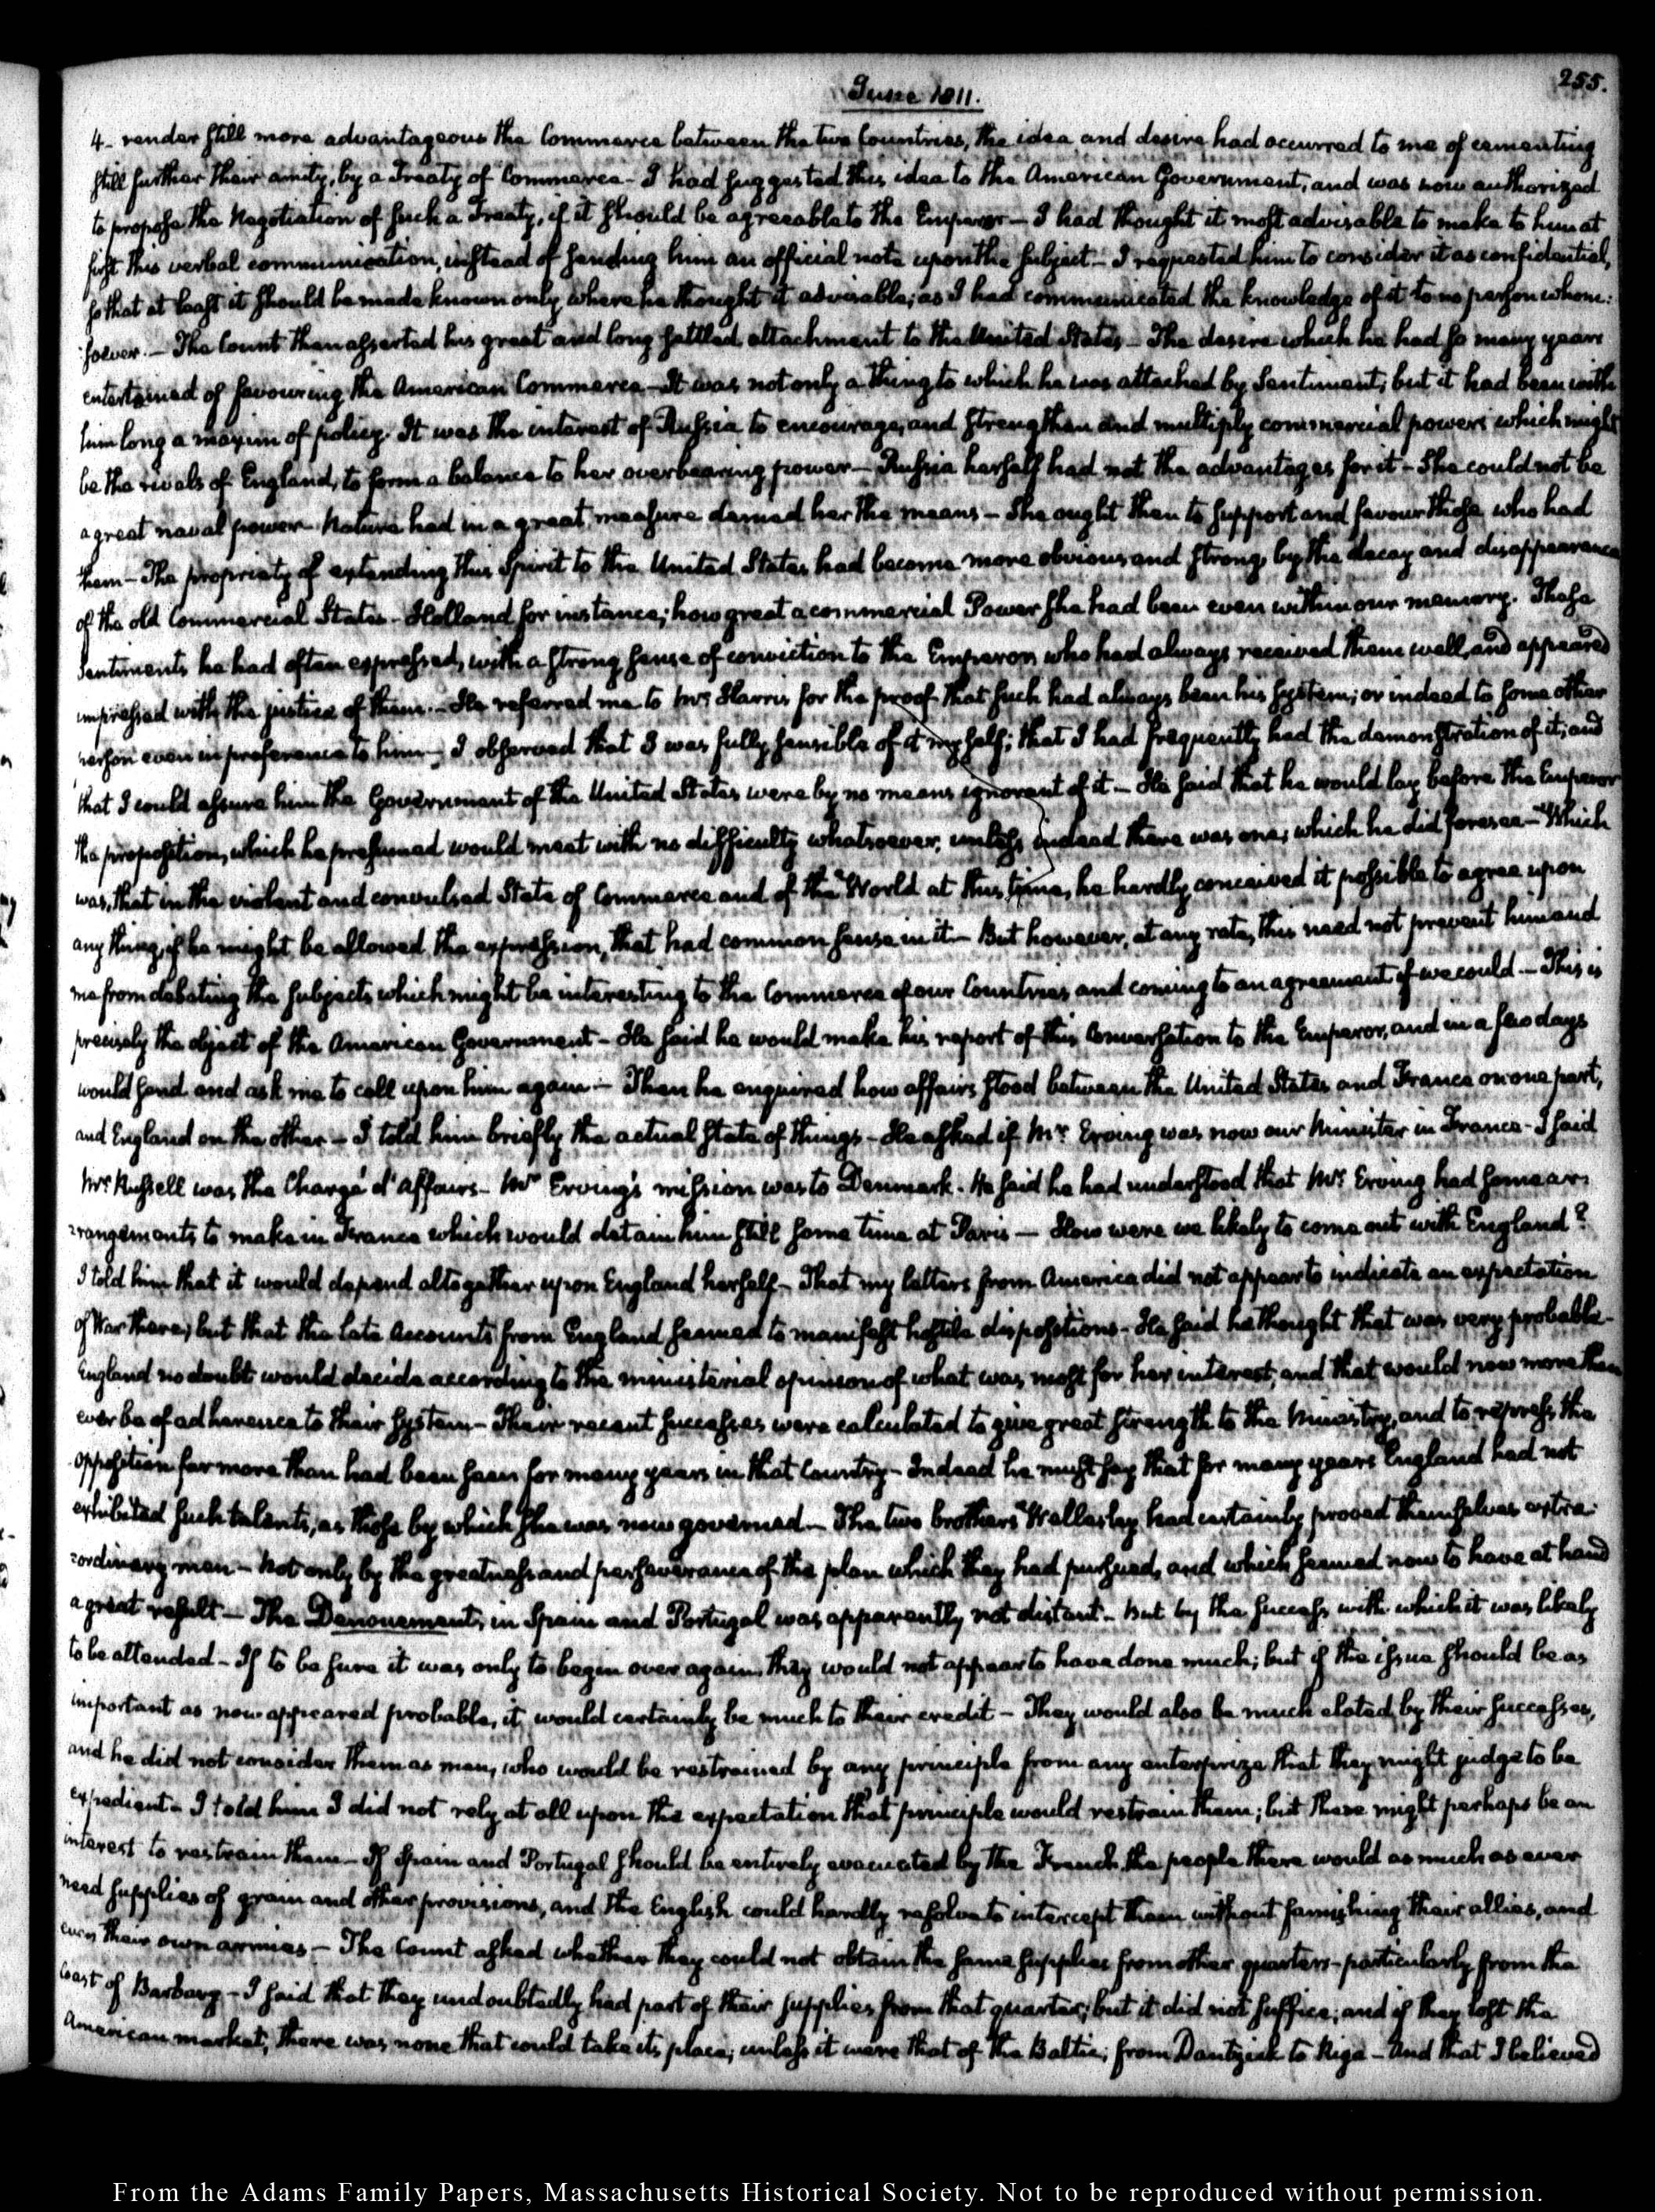 255.
June 1811.
4- render still more advantageous the Commerce between the two Countries, the idea and desire had occurred to me of cementing
still further their amity, by a Treaty of Commerce- I had suggested this idea to the American Government, and was now authorized
to propose the Negotiation of such a Treaty, if it should be agreeable to the Emperor— I had thought it most advisable to make to him at
first this verbal communication, instead of sending him an official note upon the subject— I requested him to consider it as confidential,
so that at least it should be made known only where he thought it advisable; as I had communicated the knowledge of it to no person whom:
:soever.— The Count then asserted his great and long settled attachment to the United States— The desire which he had so many years
entertained of favouring the American Commerce— It was not only a thing to which he was attached by Sentiment; but it had been with
him long a maxim of policy. It was the interest of Russia to encourage, and strengthen and multiply commercial powers which might
be the rivals of England, to form a balance to her overbearing power— Russia herself had not the advantages for it— She could not be
a great naval power— Nature had in a great measure denied her the means— She ought then to support and favour those who had
them— The propriety of extending this Spirit to the United States had become more obvious and strong, by the decay and disappearance
of the old Commercial States— Holland for instance; how great a commercial Power she had been even within our memory. These
Sentiments he had often expressed, with a strong sense of conviction to the Emperor, who had always received them well, and appeared
impressed with the justice of them.— He referred me to Mr Harris for the proof that such had always been his system; or indeed to some other
person even in preference to him— I observed that I was fully sensible of it myself; that I had frequently had the demonstration of it; and
that I could assure him the Government of the United States were by no means ignorant of it— He said that he would lay before the Emperor
the proposition, which he presumed would meet with no difficulty whatsoever, unless indeed there was one, which he did foresee— Which
was, that in the violent and convulsed State of Commerce and of the World at this time, he hardly conceived it possible to agree upon
any thing, if he might be allowed the expression, that had common sense in it— But however, at any rate, this need not prevent him and
me from debating the subjects which might be interesting to the Commerce of our Countries and coming to an agreement if we could— This is
precisely the object of the American Government— He said he would make his report of this Conversation to the Emperor, and in a few days
would send and ask me to call upon him again— Then he enquired how affairs stood between the United States and France on one part,
and England on the other— I told him briefly the actual state of things— He asked if Mr Erving was now our Minister in France- I said
Mr Russell was the Chargé d'Affaires- Mr Erving's mission was to Denmark. He said he had understood that Mr Erving had some ar:
:rangements to make in France which would detain him still some time at Paris — How were we likely to come out with England?
I told him that it would depend altogether upon England herself— That my letters from America did not appear to indicate an expectation
of War there; but that the late Accounts from England seemed to manifest hostile dispositions- He said he thought that was very probable-
England no doubt would decide according to the ministerial opinion of what was most for her interest, and that would now more than
ever be of adherence to their system— Their recent successes were calculated to give great strength to the Ministry, and to repress the
opposition far more than had been seen for many years in that Country— Indeed he must say that for many years England had not
exhibited such talents, as those by which she was now governed— The two brothers Wellesley had certainly proved themselves extra:
:ordinary men— Not only by the greatness and perseverance of the plan which they had pursued, and which seemed now to have at hand
a great result— The Denouement, in Spain and Portugal was apparently not distant- But by the success with which it was likely
to be attended- If to be sure it was only to begin over again, they would not appear to have done much; but if the issue should be as
important as now appeared probable, it would certainly be much to their credit— They would also be much elated by their successes,
and he did not consider them as men, who would be restrained by any principle from any enterprize that they might judge to be
expedient— I told him I did not rely at all upon the expectation that principle would restrain them; but there might perhaps be an
interest to restrain them— If Spain and Portugal should be entirely evacuated by the French, the people there would as much as ever
need supplies of grain and other provisions, and the English could hardly resolve to intercept them without famishing their allies, and
even their own armies— The Count asked whether they could not obtain the same supplies from other quarters- particularly from the
Coast of Barbary— I said that they undoubtedly had part of their supplies from that quarter; but it did not suffice; and if they lost the
American market, there was none that could take its place; unless it were that of the Baltic; from Dantzick to Riga— And that I believed
From the Adams Family Papers, Massachusetts Historical Society. Not to be reproduced without permission.